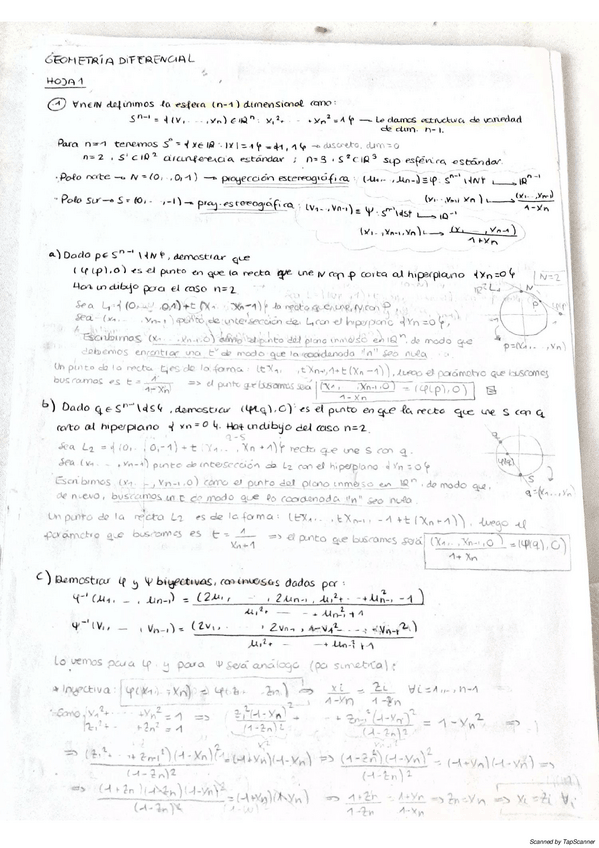 GEOMETRÍA DIFERENCIAL
HOJA 1
1 ∀n∈ℕ definimos la esfera (n-1) dimensional como:
S^{n-1} = {(x₁, ..., xₙ) ∈ ℝⁿ : x₁² + ... + xₙ² = 1} — Le damos estructura de variedad
de dim. n-1.
Para n=1 tenemos S⁰ = {x∈ℝ : |x| = 1} = {-1, 1} → discreto, dim=0
n=2, S¹⊂ℝ² circunferencia estándar; n=3, S²⊂ℝ³ sup esférica estándar.
· Polo norte → N = (0, ..., 0, 1) → proyección estereográfica: (μ₁, ..., μₙ₋₁) ≡ φ: S^{n-1} \ {N} → ℝ^{n-1}
(x₁, ..., xₙ₋₁, xₙ) → (x₁, ..., xₙ₋₁)/(1-xₙ)
· Polo sur → S = (0, ..., -1) → proy. estereográfica: (v₁, ..., vₙ₋₁) ≡ ψ: S^{n-1} \ {S} → ℝ^{n-1}
(x₁, ..., xₙ₋₁, xₙ) → (x₁, ..., xₙ₋₁)/(1+xₙ)
a) Dado p∈S^{n-1} \ {N}, demostrar que
(φ(p), 0) es el punto en que la recta que une N con p corta al hiperplano {xₙ=0}
Haz un dibujo para el caso n=2
N=2
Sea L₁ = {(0, ..., 0, 1) + t(x₁, ..., xₙ-1)} la recta que une N con P.
Sea (x₁, ..., xₙ₋₁) punto de intersección de L₁ con el hiperplano {xₙ=0},
Escribimos (x₁, ..., xₙ₋₁, 0) como el punto del plano inmerso en ℝⁿ, de modo que
debemos encontrar una "t" de modo que la coordenada "n" sea nula.
P
p=(x₁, ..., xₙ)
Un punto de la recta L₁ es de la forma: (tx₁, ..., txₙ₋₁, 1+t(xₙ-1)), luego el parámetro que buscamos
buscamos es t = 1/(1-xₙ) ⇒ el punto que buscamos será (x₁, ..., xₙ₋₁, 0)/(1-xₙ) = (φ(p), 0)
b) Dado q∈S^{n-1} \ {S}, demostrar (ψ(q), 0) es el punto en que la recta que une S con q
corta al hiperplano {xₙ=0}. Haz un dibujo del caso n=2.
Sea L₂ = {(0, ..., 0, -1) + t(x₁, ..., xₙ+1)} recta que une S con q.
q-S
Sea (x₁, ..., xₙ₋₁) punto de intersección de L₂ con el hiperplano {xₙ=0}
Escribimos (x₁, ..., xₙ₋₁, 0) como el punto del plano inmerso en ℝⁿ, de modo que,
de nuevo, buscamos un t de modo que la coordenada "n" sea nula.
q
ψ(q)
S
q=(x₁, ..., xₙ)
Un punto de la recta L₂ es de la forma: (tx₁, ..., txₙ₋₁, -1+t(xₙ+1)), luego el
parámetro que buscamos es t = 1/(xₙ+1) ⇒ el punto que buscamos será (x₁, ..., xₙ₋₁, 0)/(1+xₙ) = (ψ(q), 0)
c) Demostrar φ y ψ biyectivas, con inversas dados por:
φ⁻¹(μ₁, ..., μₙ₋₁) = (2μ₁, ..., 2μₙ₋₁, μ₁² + ... + μ²ₙ₋₁ - 1)/(μ₁² + ... + μ²ₙ₋₁ + 1)
ψ⁻¹(v₁, ..., vₙ₋₁) = (2v₁, ..., 2vₙ₋₁, 1-v₁² - ... - vₙ₋₁²)/(μ₁² + ... + μₙ₋₁ + 1)
Lo vemos para φ, y para ψ será análogo (por simetría):
* Inyectiva: φ(x₁, ..., xₙ) = φ(z₁, ..., zₙ) ⇒ xᵢ/(1-xₙ) = zᵢ/(1-zₙ) ∀i=1, ..., n-1
Como x₁² + ... + xₙ² = 1, z₁² + ... + zₙ² = 1 ⇒ z₁²(1-xₙ)²/(1-zₙ)² + ... + zₙ₋₁²(1-xₙ)²/(1-zₙ)² = 1-xₙ² ⇒
⇒ (z₁² + ... + zₙ₋₁²)(1-xₙ)²/(1-zₙ)² = (1+xₙ)(1-xₙ) ⇒ (1-zₙ²)(1-xₙ)²/(1-zₙ)² = (1+xₙ)(1-xₙ) ⇒
⇒ (1+zₙ)(1-zₙ)(1-xₙ)²/(1-zₙ)² = (1+xₙ)(1-xₙ) ⇒ (1+zₙ)/(1-zₙ) = (1+xₙ)/(1-xₙ) ⇒ zₙ=xₙ ⇒ xᵢ=zᵢ ∀i
Scanned by TapScanner